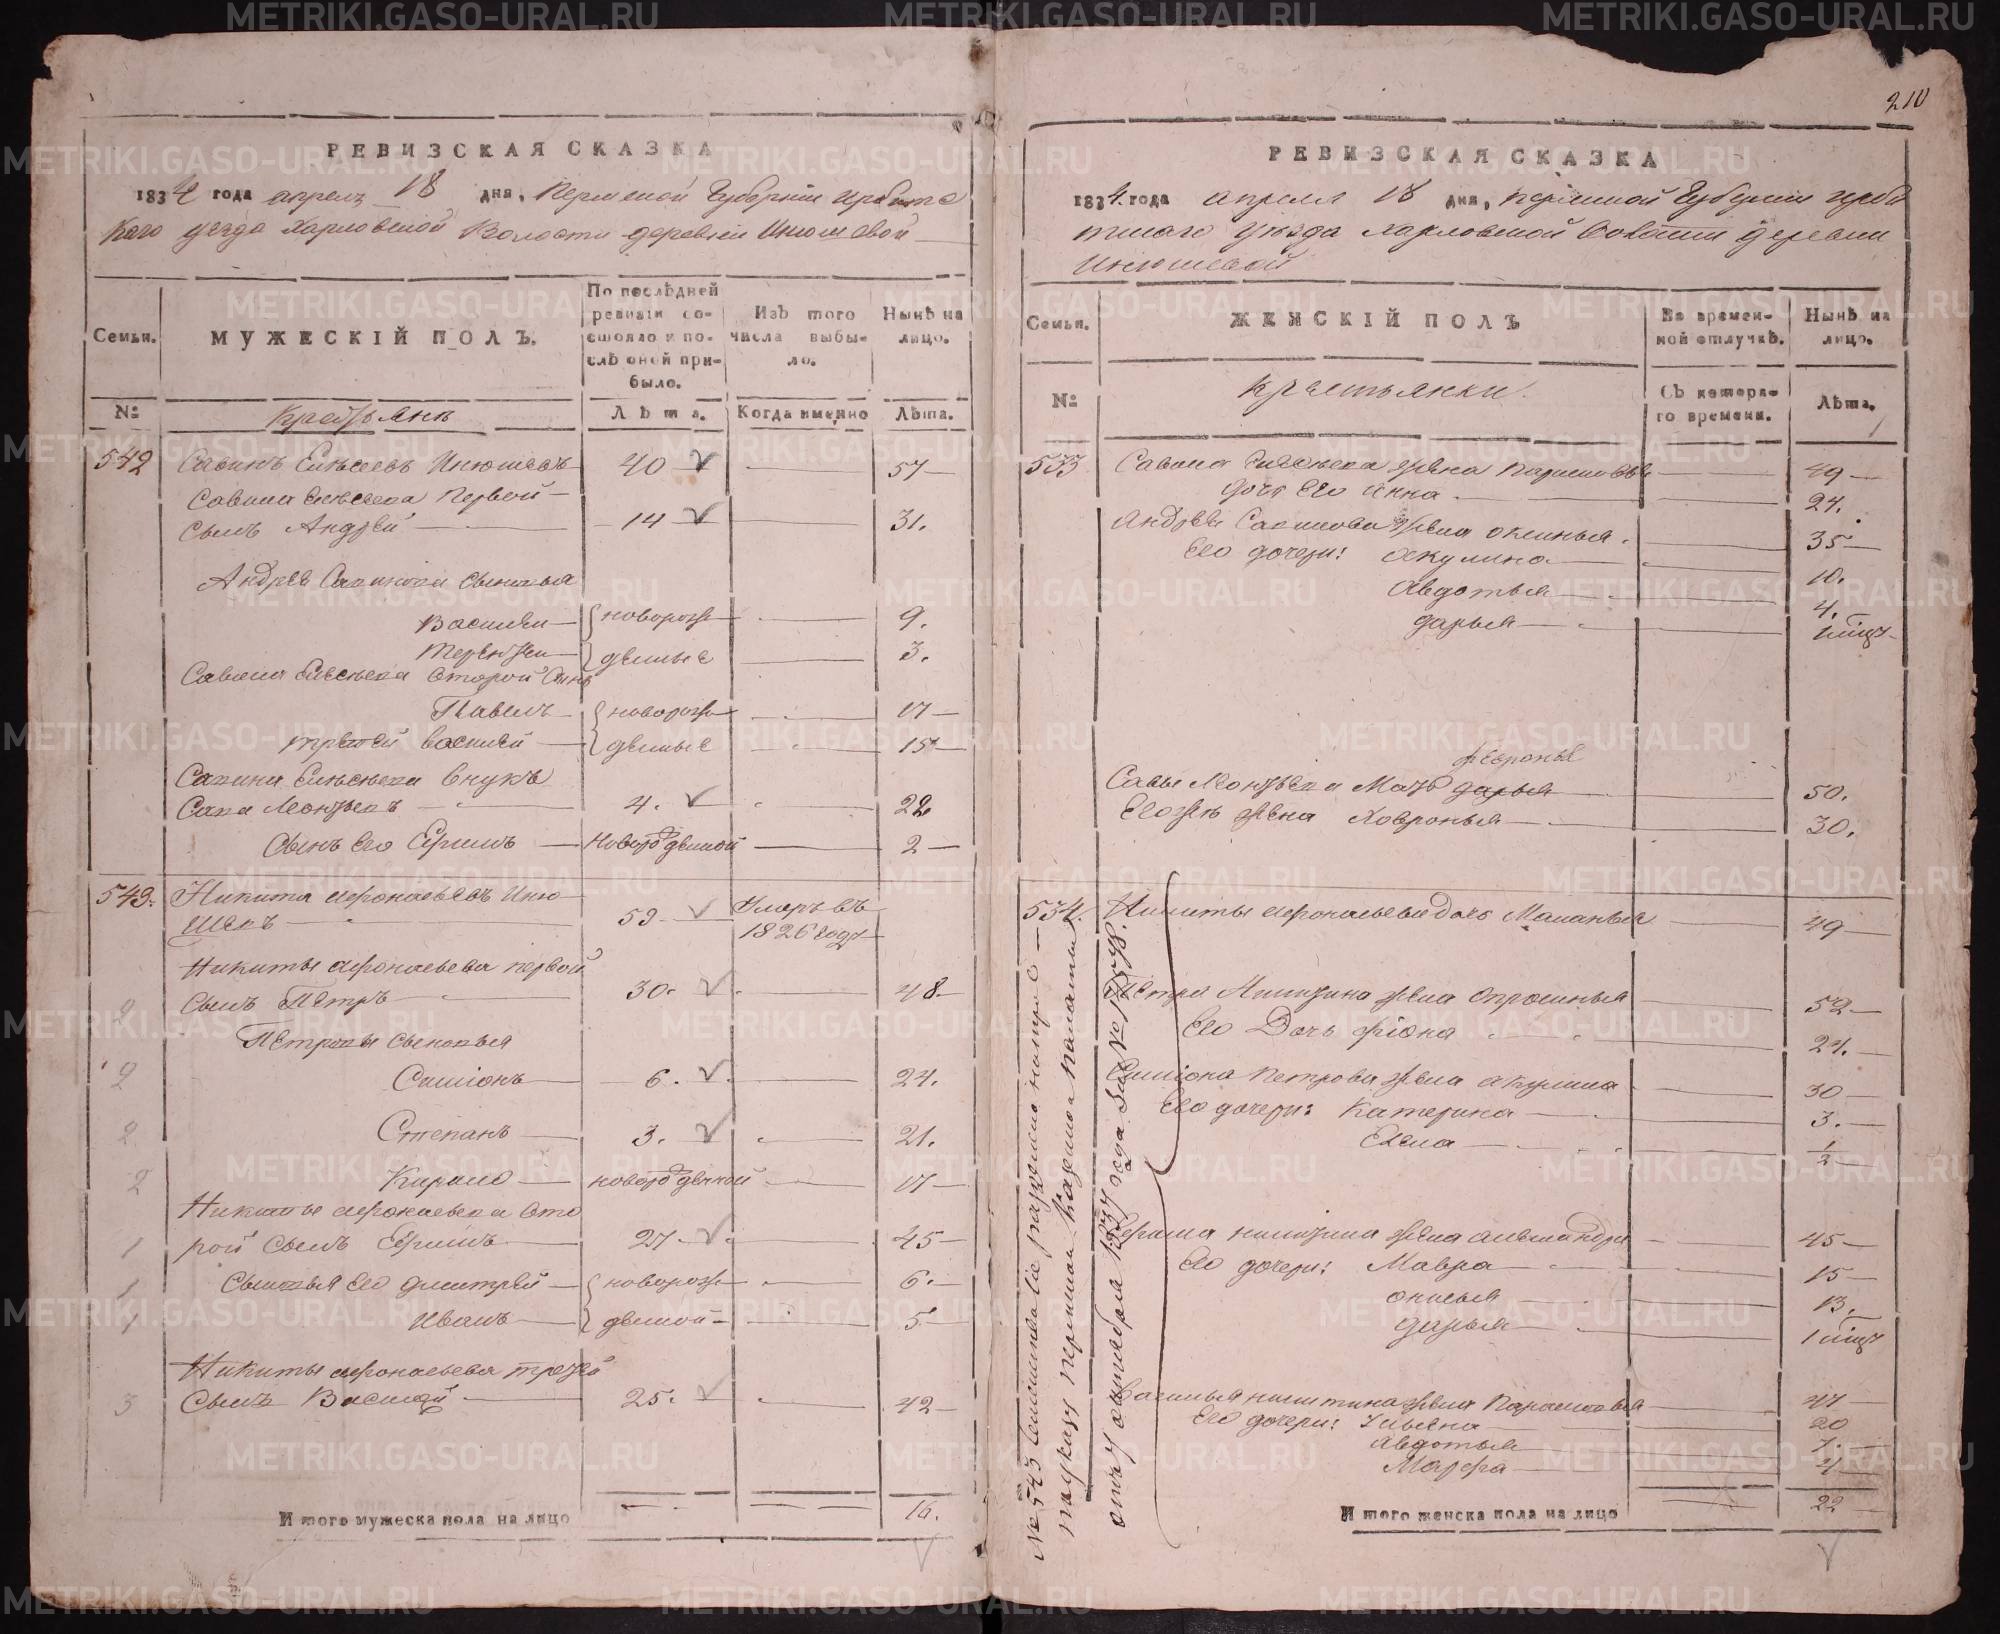 210
РЕВИЗСКАЯ СКАЗКА
1834 года апреля 18 дня, Пермской Губернии Ирбитс
каго уезда Харловской Волости деревни Инюшевой
Семьи.
МУЖЕСКІЙ ПОЛЪ.
По послѣдней ревизіи состояло и послѣ оной прибыло.
Изъ того числа выбыло.
Нынѣ на лицо.
№
Крестьяне
Лѣта.
Когда именно
Лѣта.
542 Савинъ Елисеевъ Инюшевъ 40 57
Савина Елисеева первой
сынъ Андрей 14 31.
Андрея Савинова сыновья
Василей новорож 9.
Терентей денные 3.
Савина Елисеева второй сынъ
Павелъ новорож 17
третей Василей денные 15
Савина Елисеева внукъ
Сава Леонтьевъ 4. 22
Сынъ его Ефимъ новорожденной 2
543. Никита Афонасьевъ Иню
шевъ 59 Умеръ въ 1826 году
Никиты Афонасьева первой
сынъ Петръ 30. 48.
2
Петровы сыновья
2 Симіонъ 6. 24.
2 Степанъ 3. 21.
2 Кирило новорожденной 17
Никиты Афонасьева вто
1 рой сынъ Ефимъ 27. 45
1 Сыновья его Дмитрей новорож 6.
1 Иванъ денной 5
Никиты Афонасьева третей
3 сынъ Василей 25. 42
Итого мужеска пола на лицо 16.
РЕВИЗСКАЯ СКАЗКА
1834. года апреля 18 дня, Пермской Губернии Ирби
тскаго уезда Харловской Волости деревни
Инюшевой
Семьи.
ЖЕНСКІЙ ПОЛЪ
Во временной отлучкѣ.
Нынѣ на лицо.
№
Крестьянки.
Съ котораго времени.
Лѣта.
533 Савина Елисеева жена Парасковья 49
дочь его Анна 24.
Андрея Савинова жена Оксинья. 35
Его дочери: Акулина 10.
Авдотья 4.
Дарья 1 мцъ
Февронья
Савы Леонтьева мать Дарья 50.
Егожъ жена Ховронья 30.
534. Никиты Афонасьева дочь Маланья 49
Петра Никитина жена Опросинья 52
Его дочь Фіона 24.
Симіона Петрова жена Акулина 30
Его дочери: Катерина 3.
Елена 1/2
Ефима Никитина жена Александра 45
Его дочери: Мавра 15
Онисья 13.
Дарья 1 мцъ
Василья Никитина жена Парасковья 47
Его дочери: Ульяна 20
Авдотья 7.
Марфа 4
Итого женска пола на лицо 22
№ 543 Семейство сіе разделено на три
по указу Пермской Казенной палаты
отъ 4 октября 1837 года за №
METRIKI.GASO-URAL.RU